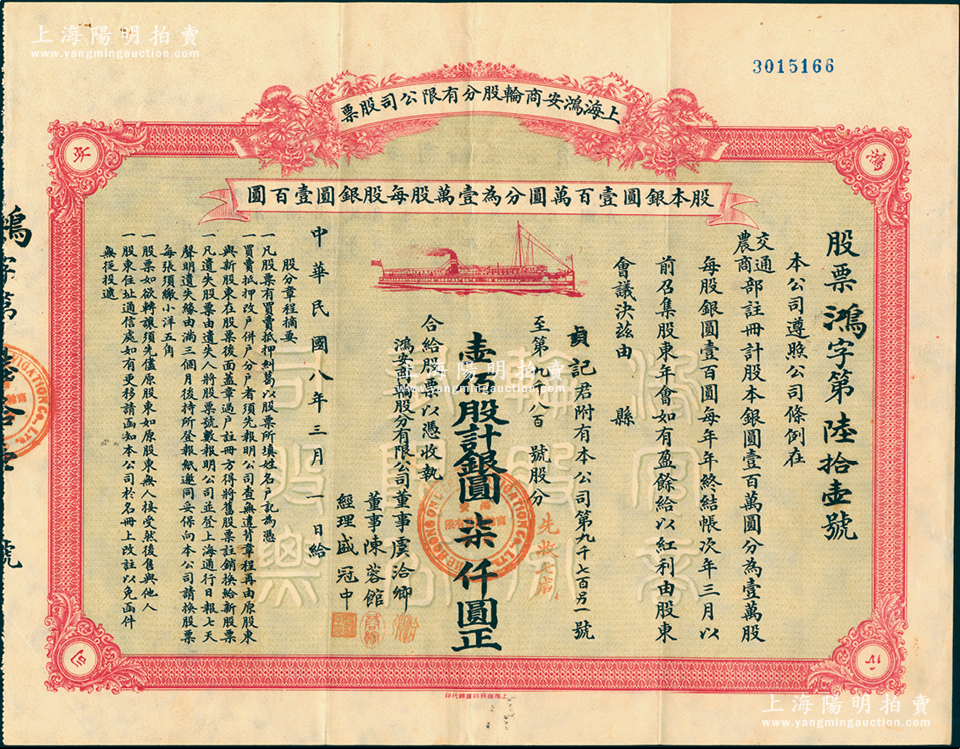 上海陽明拍賣
www.yangmingauction.com
3015166
票股司公限有分股輪商安鴻海上
圓百壹圓銀股每股萬壹為分圓萬百壹圓銀本股
股票鴻字第陸拾壹號
本公司遵照公司條例在
交通
農商
部註冊計股本銀圓壹百萬圓分為壹萬股
每股銀圓壹百圓每年年終結帳次年三月以
前召集股東年會如有盈餘給以紅利由股東
會議決茲由 縣
貞記君附有本公司第九千七百另一號
至第九千八百號股分
壹佰股計銀圓柒仟圓正
先收七成
合給股票以憑收執
鴻安商輪股分有限公司董事虞洽卿
董事陳蓉館
經理盛冠中
中華民國八年三月一日給
股分章程摘要
一凡股票有買賣抵押糾葛以股票所填姓名戶記為憑
一買賣抵押改戶併戶分戶者須先報明公司查無違背章程再由原股東
與新股東在股票後面蓋章過戶註冊方得將舊股票註銷換給新股票
一凡遺失股票由遺失人將股票號數報明公司並登上海通行日報七天
聲明遺失緣由滿三個月後持所登報紙邀同妥保向本公司請換股票
每張須繳小洋五角
一股票如欲轉讓須先儘原股東如原股東無人接受然後售與他人
一股東住址通信處如有更移請函知本公司於名冊上改註以免函件
無從投遞
鴻字第陸拾壹號
鴻
安
公
司
上海陽明拍賣
www.yangmingauction.com
上海陽明拍賣
www.yangmingauction.com